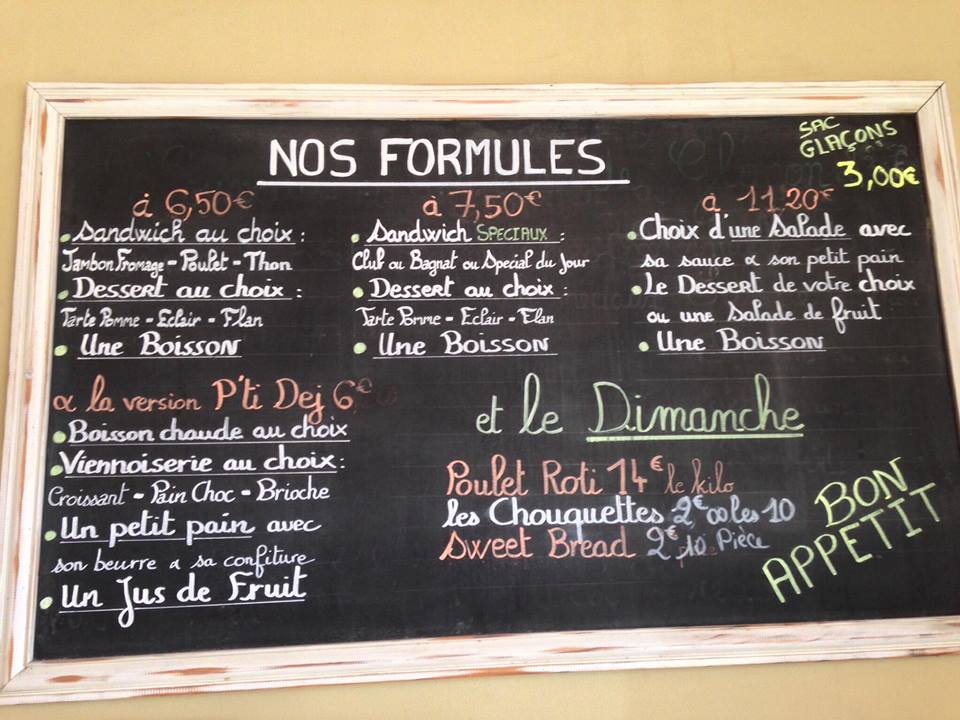 NOS FORMULES
SAC
GLAÇONS
3,00€
à 6,50€
• Sandwich au choix :
Jambon Fromage - Poulet - Thon
• Dessert au choix :
Tarte Pomme - Eclair - Flan
• Une Boisson
à 7,50€
• Sandwich SPECIAUX :
Club ou Bagnat ou Special du Jour
• Dessert au choix :
Tarte Pomme - Eclair - Flan
• Une Boisson
à 11,20€
• Choix d'une Salade avec
sa sauce & son petit pain
• Le Dessert de votre choix
ou une Salade de fruit
• Une Boisson
& la version P'ti Dej 6€
• Boisson chaude au choix
• Viennoiserie au choix :
Croissant - Pain Choc - Brioche
• Un petit pain avec
son beurre & sa confiture
• Un Jus de Fruit
et le Dimanche
Poulet Roti 14€ le kilo
les Chouquettes 2€00 les 10
Sweet Bread 2€10 Pièce
BON
APPETIT